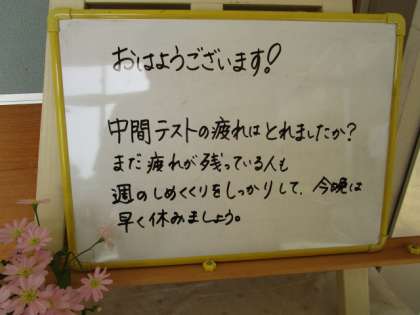 おはようございます!
中間テストの疲れはとれましたか?
まだ疲れが残っている人も
週のしめくくりをしっかりして、今晩は
早く休みましょう。